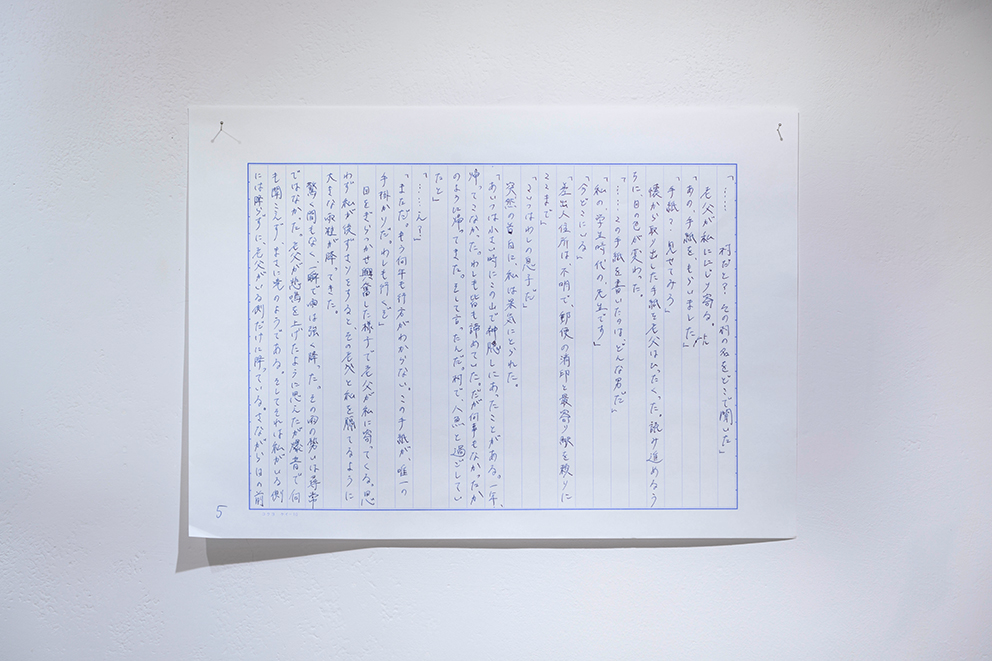 「……村だと？その村の名をどこで聞いた」
老父が私ににじり寄る。
「あの手紙を、もらいました」
「手紙？…見せてみろ」
懐から取り出した手紙を老父はひったくった。読み進めるう
ちに目の色が変わった。
「……この手紙を書いたのは、どんな男だ」
「私の学生時代の先生です」
「今どこにいる」
「差出人住所は不明で、郵便の消印と最寄り駅を頼りに
ここまで」
「こいつはわしの息子だ」
突然の告白に、私は呆気にとられた。
「あいつは小さい時にこの山で神隠しにあったことがある。一年、
帰ってこなかった。わしも皆も諦めていた。だが何事もなかったか
のように帰ってきた。そして言ったんだ。村で、人魚と過ごしてい
たと」
「……え？」
「まただ。もう何年も行方がわからない。この手紙が、唯一の
手掛かりだ。わしも行くぞ」
目をぎらつかせ興奮した様子で老父が私に寄ってくる。思
わず私が後ずさりをすると、その老父と私を隔てるように
大きな雨粒が降ってきた。
驚く間もなく、一瞬で雨は強く降った。その雨の勢いは尋常
ではなかった。老父が悲鳴を上げたように思えたが爆音で何
も聞こえず、まさに滝のようである。そしてそれは私がいる側
には降らずに、老父がいる側だけに降っている。さながら目の前
5